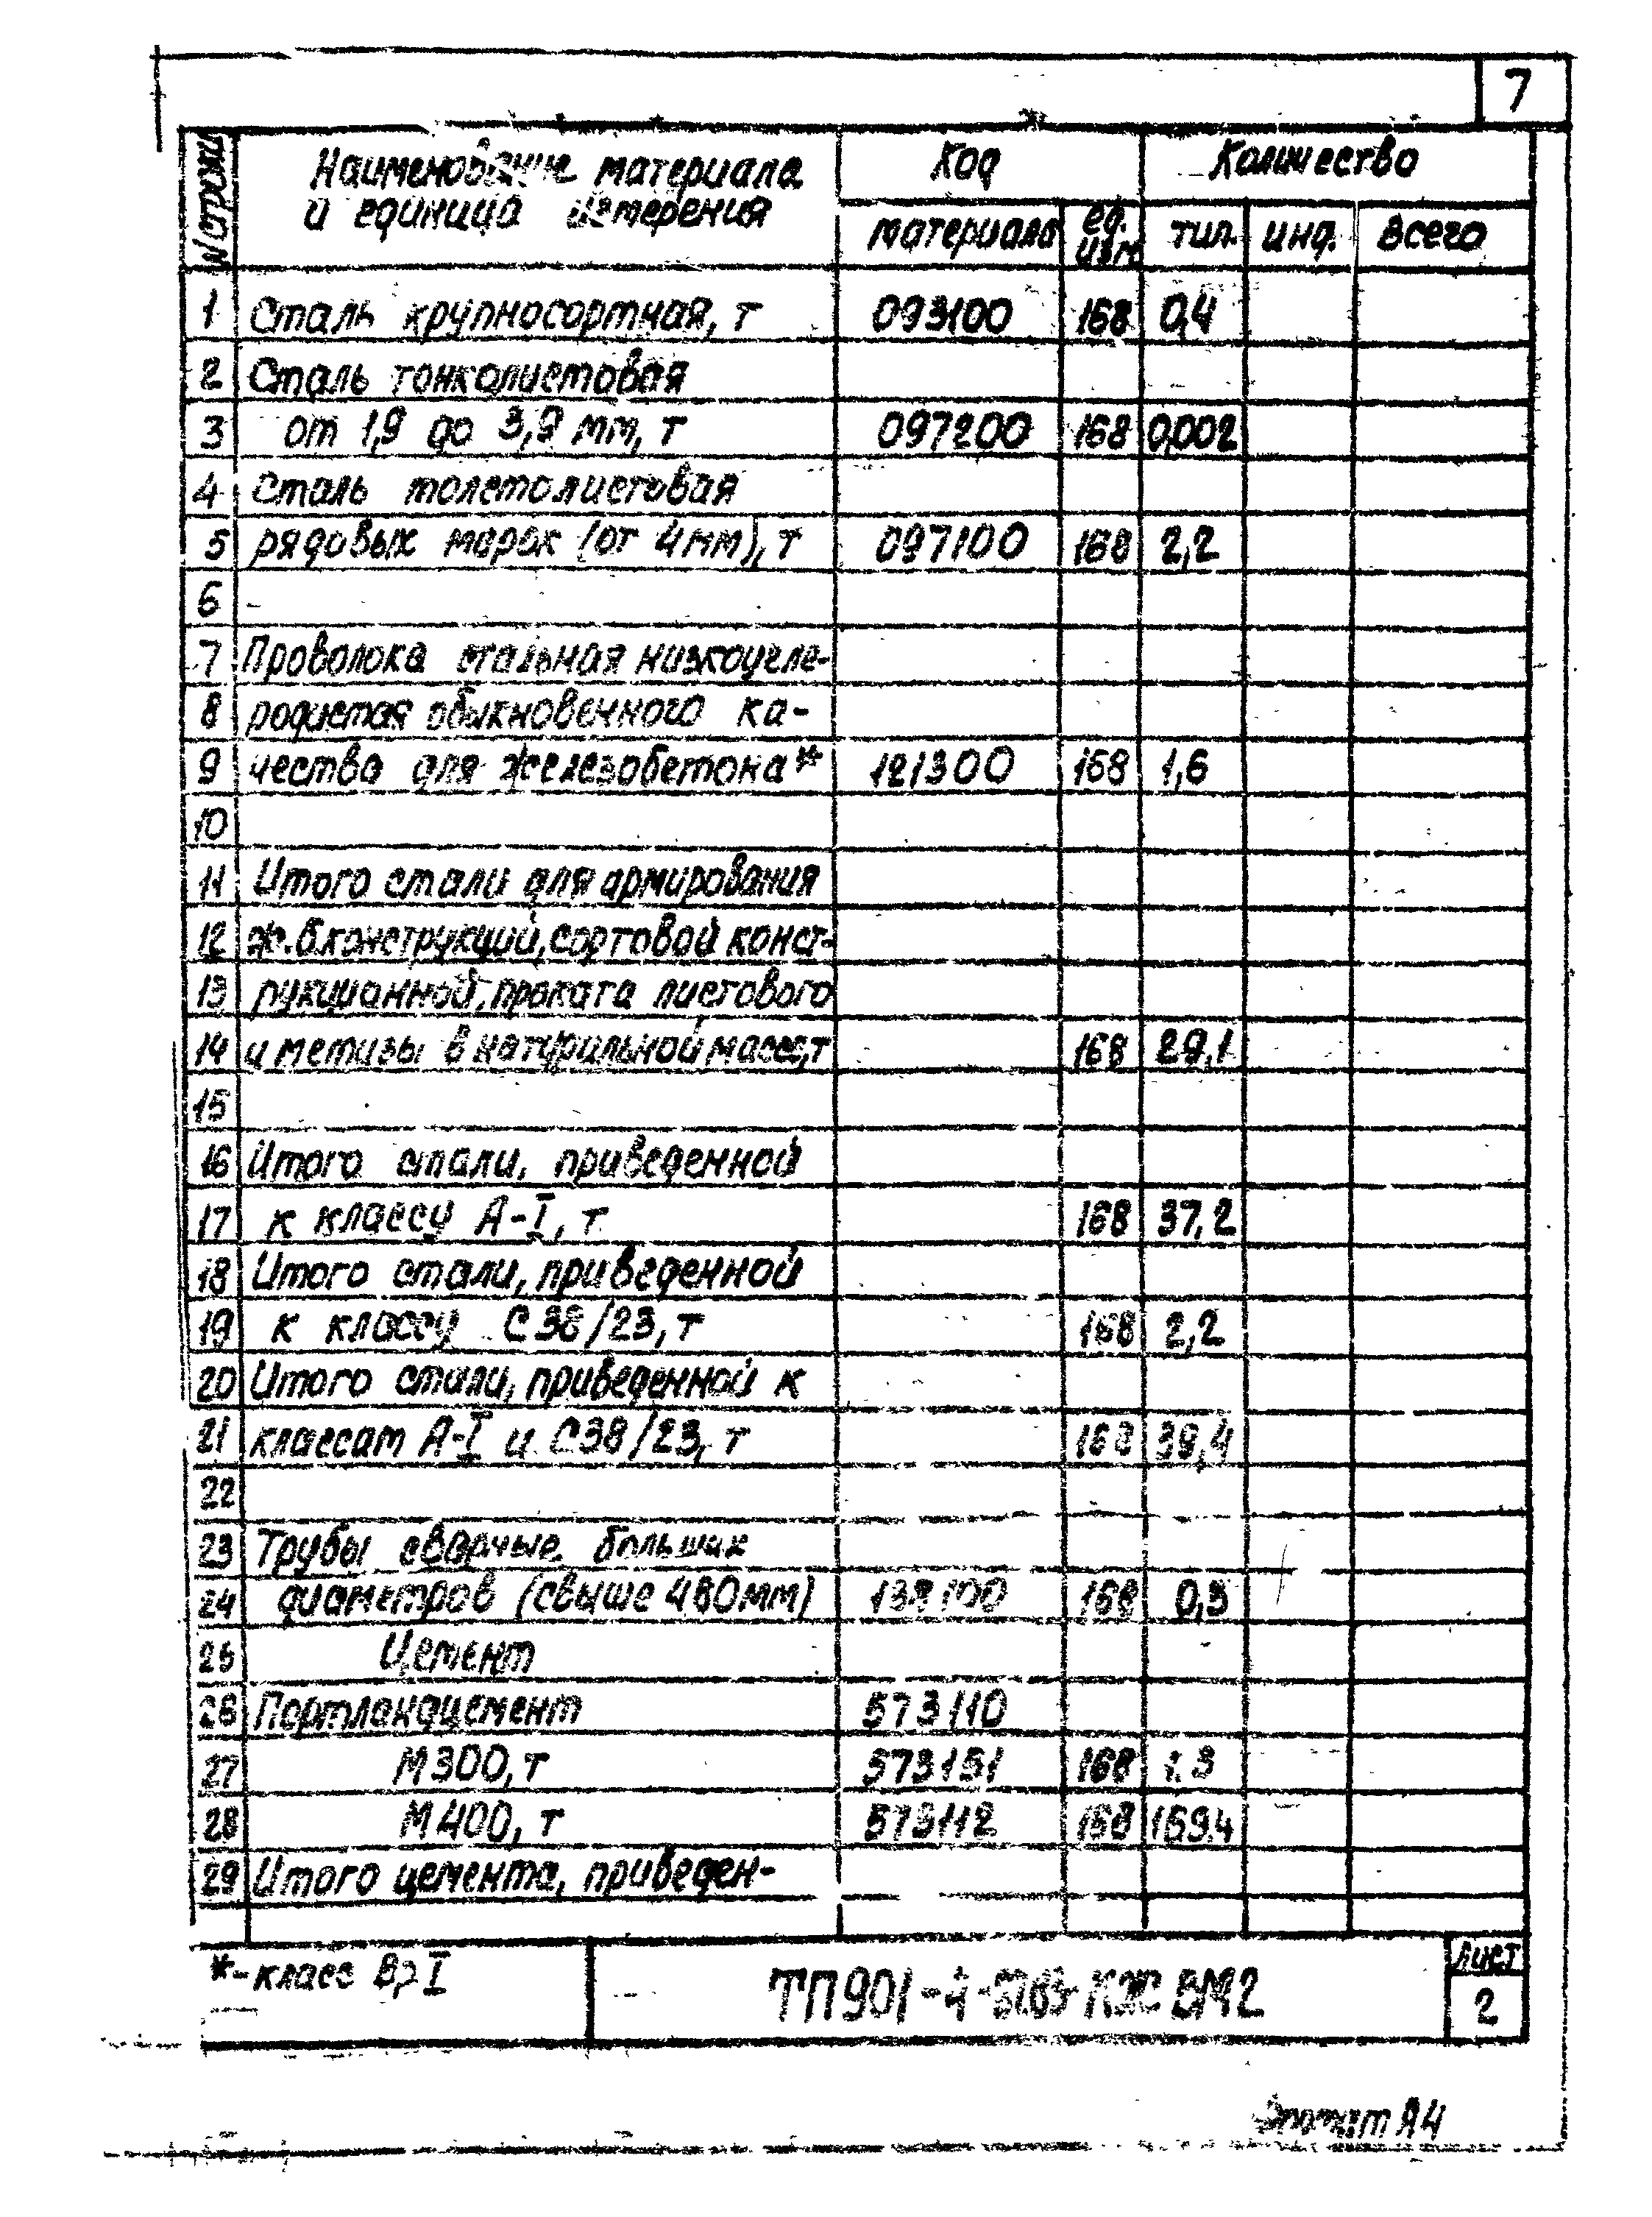 7
№ строки
Наименование материала
и единица измерения
Код
Количество
материала
ед. изм.
тип.
инд.
всего
1 Сталь крупносортная, т 093100 168 0,4
2 Сталь тонколистовая
3 от 1,9 до 3,9 мм, т 097200 168 0,002
4 Сталь толстолистовая
5 рядовых марок (от 4мм), т 097100 168 2,2
6
7 Проволока стальная низкоугле-
8 родистая обыкновенного ка-
9 чества для железобетона* 121300 168 1,6
10
11 Итого стали для армирования
12 ж.б.конструкций, сортовой конст-
13 рукционной, проката листового
14 и метизы в натуральной массе, т 168 29,1
15
16 Итого стали, приведенной
17 к классу А-I, т 168 37,2
18 Итого стали, приведенной
19 к классу С38/23, т 168 2,2
20 Итого стали, приведенной к
21 классам А-I и С38/23, т 168 39,4
22
23 Трубы сварные больших
24 диаметров (свыше 480мм) 138100 168
25 Цемент
26 Портландцемент 573110
27 М300, т 573151 168
28 М400, т 573112 168 159,4
29 Итого цемента, приведен-
*-класс ВрI
ТП901-4- КЖ ВМ2
Лист
2
Формат А4